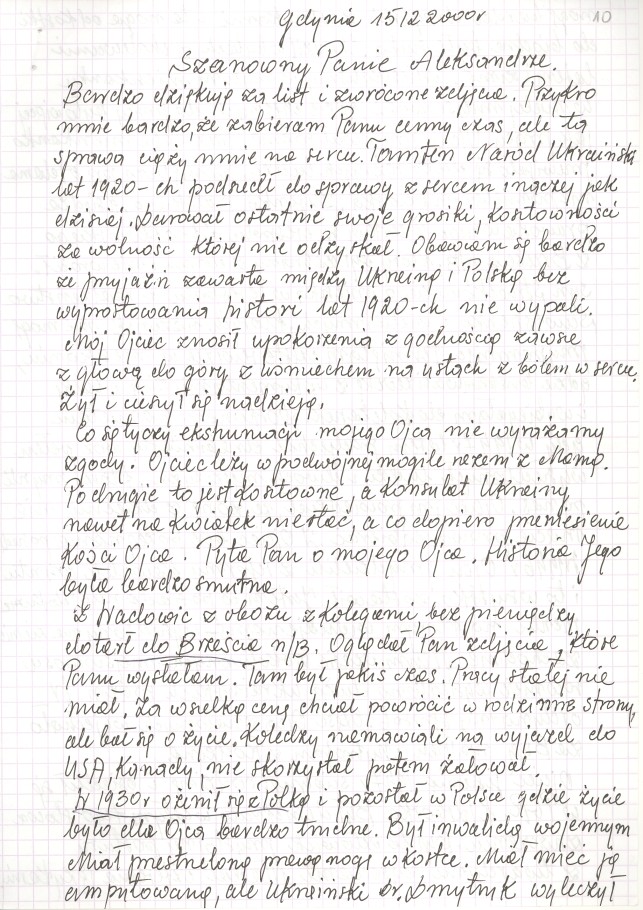 Gdynia 15/2 2000r
10
Szanowny Panie Aleksandrze.
Bardzo dziękuję za list i zwrócone zdjęcia. Przykro
mnie bardzo, że zabieram Panu cenny czas, ale ta
sprawa ciąży mnie na sercu. Tamten Naród Ukraiński
lat 1920-ch podszedł do sprawy z sercem inaczej jak
dzisiaj. Darował ostatnie swoje grosiki, kosztowności
za wolność której nie odzyskał. Obawiam się bardzo
że przyjaźń zawarta między Ukrainą i Polską bez
wyprostowania histori lat 1920-ch nie wypali.
Mój Ojciec znosił upokorzenia z godnością zawsze
z głową do góry z uśmiechem na ustach z bólem w sercu.
Żył i cieszył się nadzieją.
Co się tyczy ekshumacji mojego Ojca nie wyrażamy
zgody. Ojciec leży w podwójnej mogile razem z Mamą.
Po drugie to jest kosztowne, a Konsulat Ukrainy
nawet na kwiatek nie stać, a co dopiero przeniesienie
kości Ojca. Pyta Pan o mojego Ojca. Historia Jego
była bardzo smutna.
Z Wadowic z obozu z kolegami, bez pieniędzy
dotarł do Brześcia n/B. Oglądał Pan zdjęcia, które
Panu wysłałam. Tam był jakiś czas. Pracy stałej nie
miał. Za wszelką cenę chciał powrócić w rodzinne strony,
ale bał się o życie. Koledzy namawiali na wyjazd do
USA, Kanady, nie skorzystał potem żałował.
W 1930r ożenił się z Polką i pozostał w Polsce gdzie życie
było dla Ojca bardzo trudne. Był inwalidą wojennym
Miał przestrzeloną prawą nogę w kostce. Miał mieć ją
amputowaną, ale Ukraiński dr. Dmytryk wyleczył